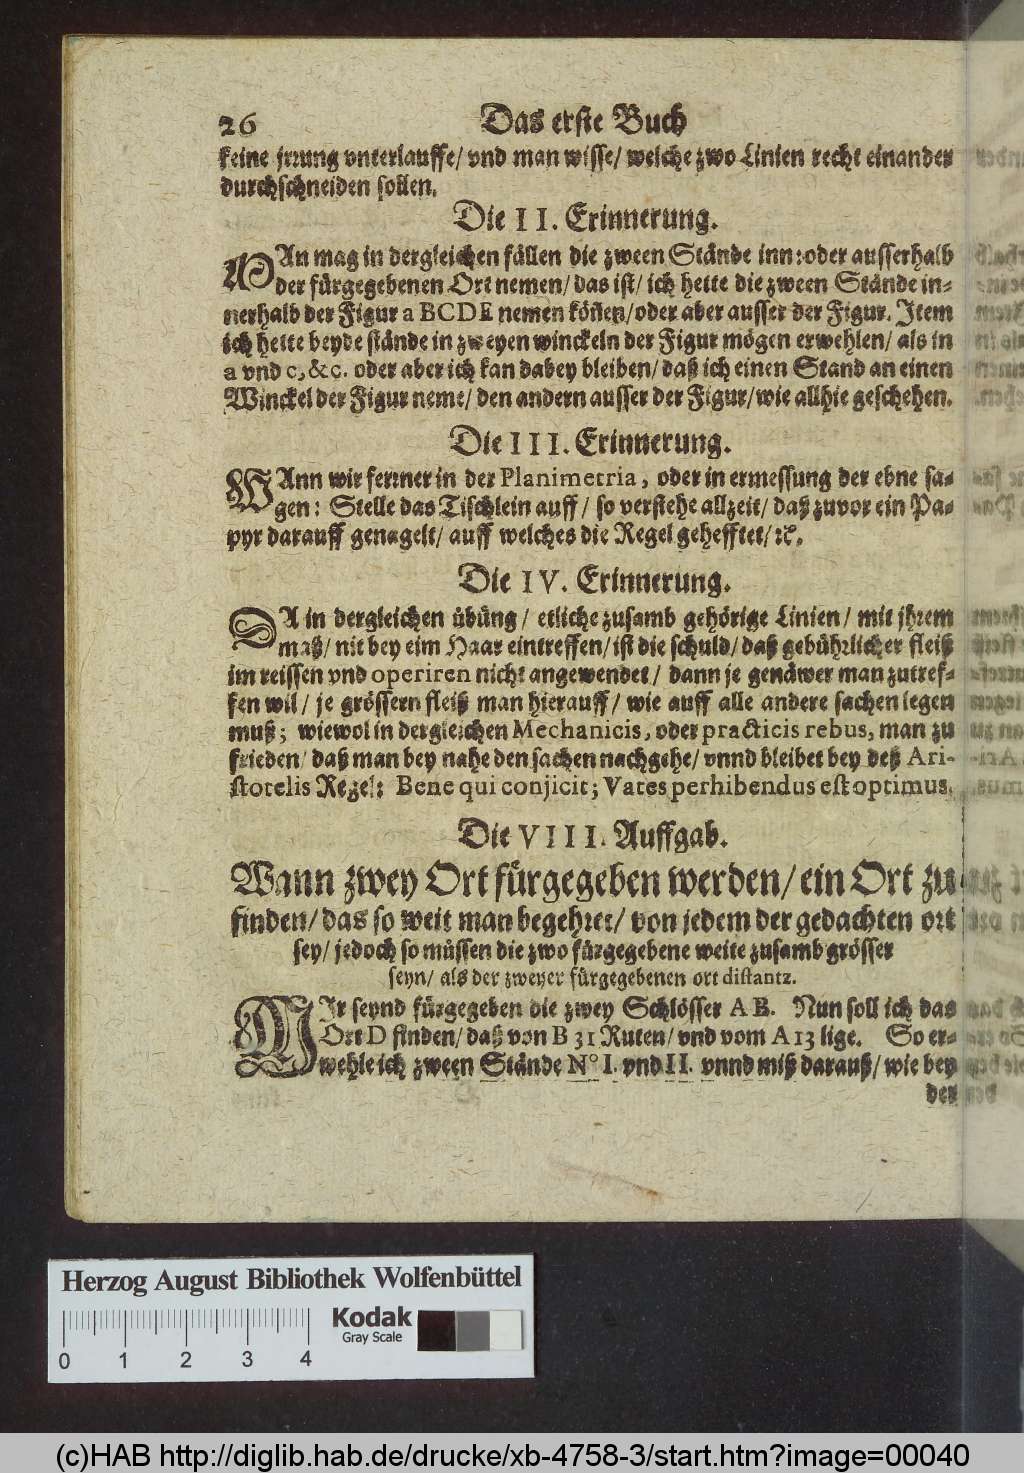 26 Das erste Buch
keine jrrung vnterlauffe/ vnd man wisse/ welche zwo Linien recht einander
durchschneiden sollen.
Die II. Erinnerung.
MAn mag in dergleichen fällen die zween Stände inn: oder ausserhalb
der fürgegebenen Ort nemen/ das ist/ ich hette die zween Stände in-
nerhalb der Figur a BCDE nemen köñen/ oder aber ausser der Figur. Item
ich hette beyde stände in zweyen winckeln der Figur mögen erwehlen/ als in
a vnd c, &c. oder aber ich kan dabey bleiben/ daß ich einen Stand an einen
Winckel der Figur neme/ den andern ausser der Figur/ wie allhie geschehen.
Die III. Erinnerung.
WAnn wir ferrner in der Planimetria, oder in ermessung der ebne sa-
gen: Stelle das Tischlein auff/ so verstehe allzeit/ daß zuvor ein Pa-
pyr darauff genagelt/ auff welches die Regel gehefftet/ ꝛc.
Die IV. Erinnerung.
DA in dergleichen übüng/ etliche zusamb gehörige Linien/ mit jhrem
maß/ nit bey eim Haar eintreffen/ ist die schuld/ daß gebührlicher fleiß
im reissen vnd operiren nicht angewendet/ dann je genäwer man zutref-
fen wil/ je grössern fleiß man hierauff/ wie auff alle andere sachen legen
muß; wiewol in dergleichen Mechanicis, oder practicis rebus, man zu
frieden/ daß man bey nahe den sachen nachgehe/ vnnd bleibet bey deß Ari-
stotelis Regel: Bene qui conjicit; Vates perhibendus est optimus.
Die VIII. Auffgab.
Wann zwey Ort fürgegeben werden/ ein Ort zu
finden/ das so weit man begehret/ von jedem der gedachten ort
sey/ jedoch so müssen die zwo fürgegebene weite zusamb grösser
seyn/ als der zweyer fürgegebenen ort distantz.
MIr seynd fürgegeben die zwey Schlösser A B. Nun soll ich das
Ort D finden/ daß von B 31 Ruten/ vnd vom A 13 lige. So er-
wehle ich zween Stände N° I. vnd II. vnnd miß darauß/ wie bey
der
Herzog August Bibliothek Wolfenbüttel
Kodak
Gray Scale
0 1 2 3 4
(c)HAB http://diglib.hab.de/drucke/xb-4758-3/start.htm?image=00040